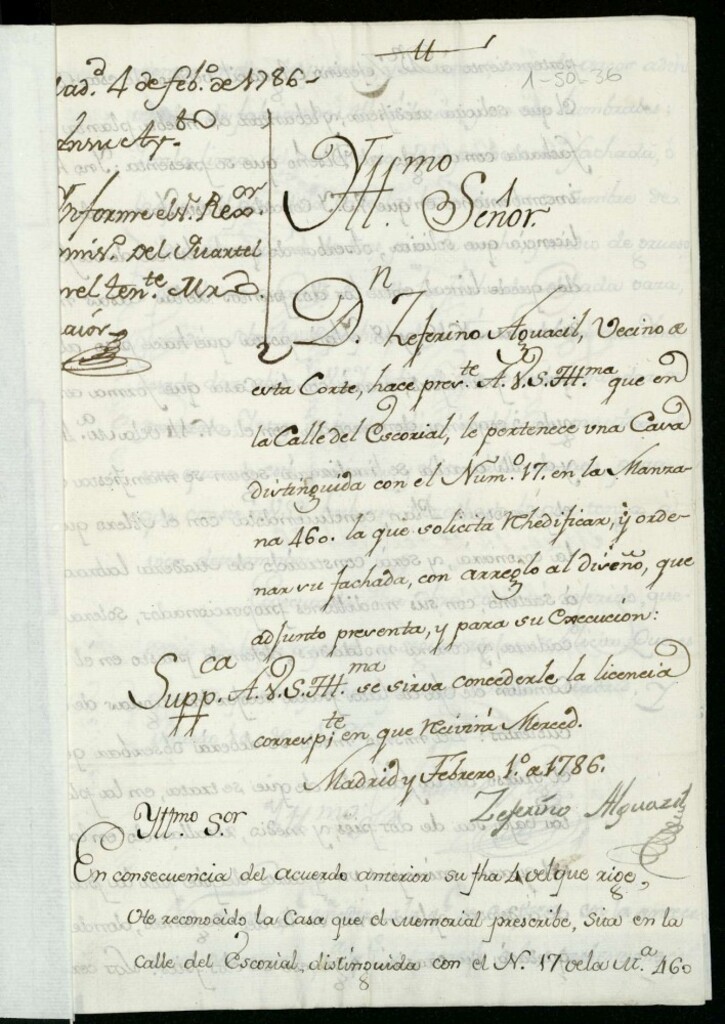 11
1-50-36
ad.d 4 de feb.o de 1786
En su Ay.to
Informe el S.r Reg.or
mis.o del Quartel
el ten.te Mr.o
aior
Yll.mo
Señor.
D.n Zeferino Aguacil, Vecino de
esta Corte, hace pres.te A.V.S.Yll.ma que en
la Calle del Escorial, le pertenece vna Casa
distinguida con el Num.o 17. en la Manza-
na 460. la que solicita Rhedificar, y orde-
nar su fachada, con arreglo al diseño, que
adjunto presenta, y para su Execucion:
Supp.ca A.V.S.Yll.ma se sirva concederle la licencia
corresp.te en que Reivirá Merced.
Madrid y Febrero 1.o de 1786.
Zeferino Alguazil
Yll.mo S.or
En consecuencia del acuerdo anterior su fha 4 del que rige,
He reconocido la Casa que el Memorial prescribe, sita en la
calle del Escorial, distinguida con el N. 17 de la M.a 460